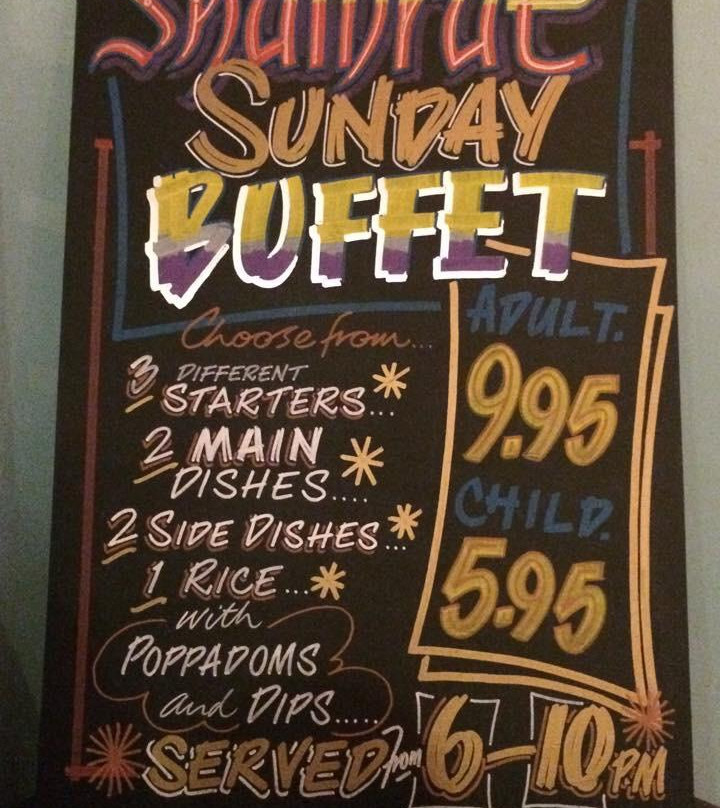 SUNDAY
BUFFET
Choose from...
3 DIFFERENT
STARTERS...
2 MAIN
DISHES....
2 SIDE DISHES...
1 RICE...
with
POPPADOMS
and DIPS.....
ADULT.
9.95
CHILD.
5.95
SERVED from 6-10 P.M